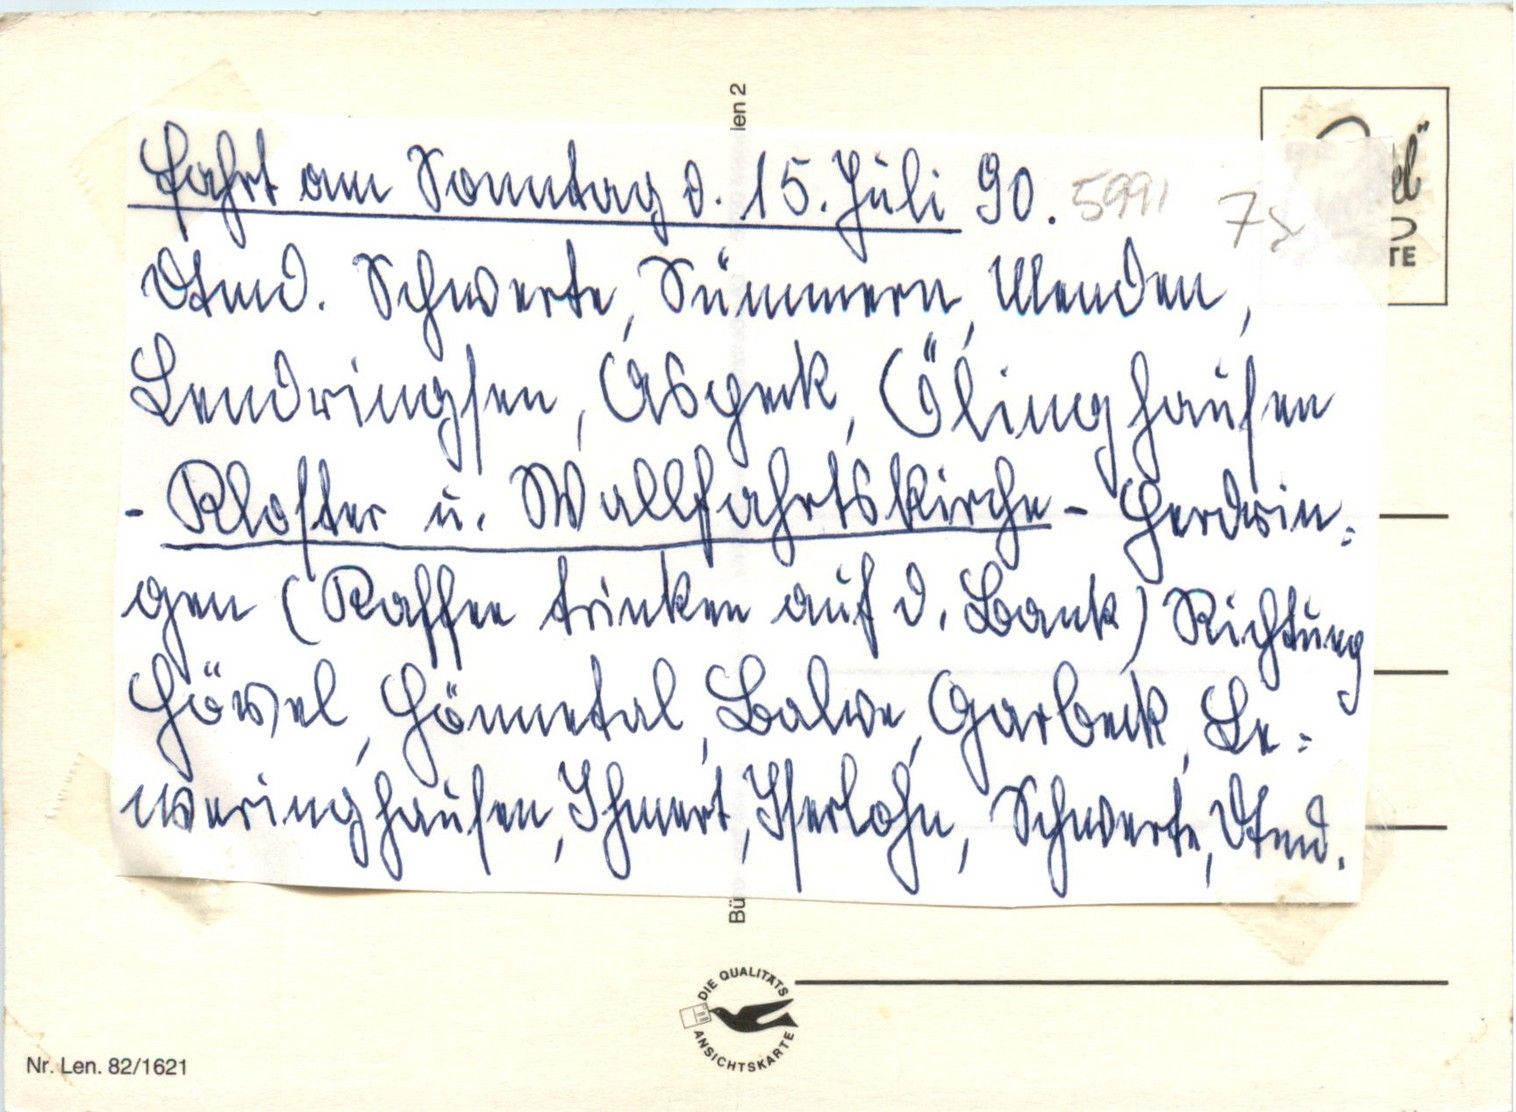 Fahrt am Sonntag d. 15. Jüli 90. 5991
Dtmd. Schwerte, Sümmern, Menden,
Lendringsen, Asbeck, Ölinghausen
- Kloster u. Wallfahrtskirche - Herdrin=
gen (Kaffee trinken auf d. Bank) Richtung
Hövel, Hönnetal, Balve, Garbeck, Le=
weringhausen, Ihmert, Iserlohn, Schwerte, Dtmd.
len 2
Bü
el"
TE
DIE QUALITÄTS
ANSICHTSKARTE
Nr. Len. 82/1621